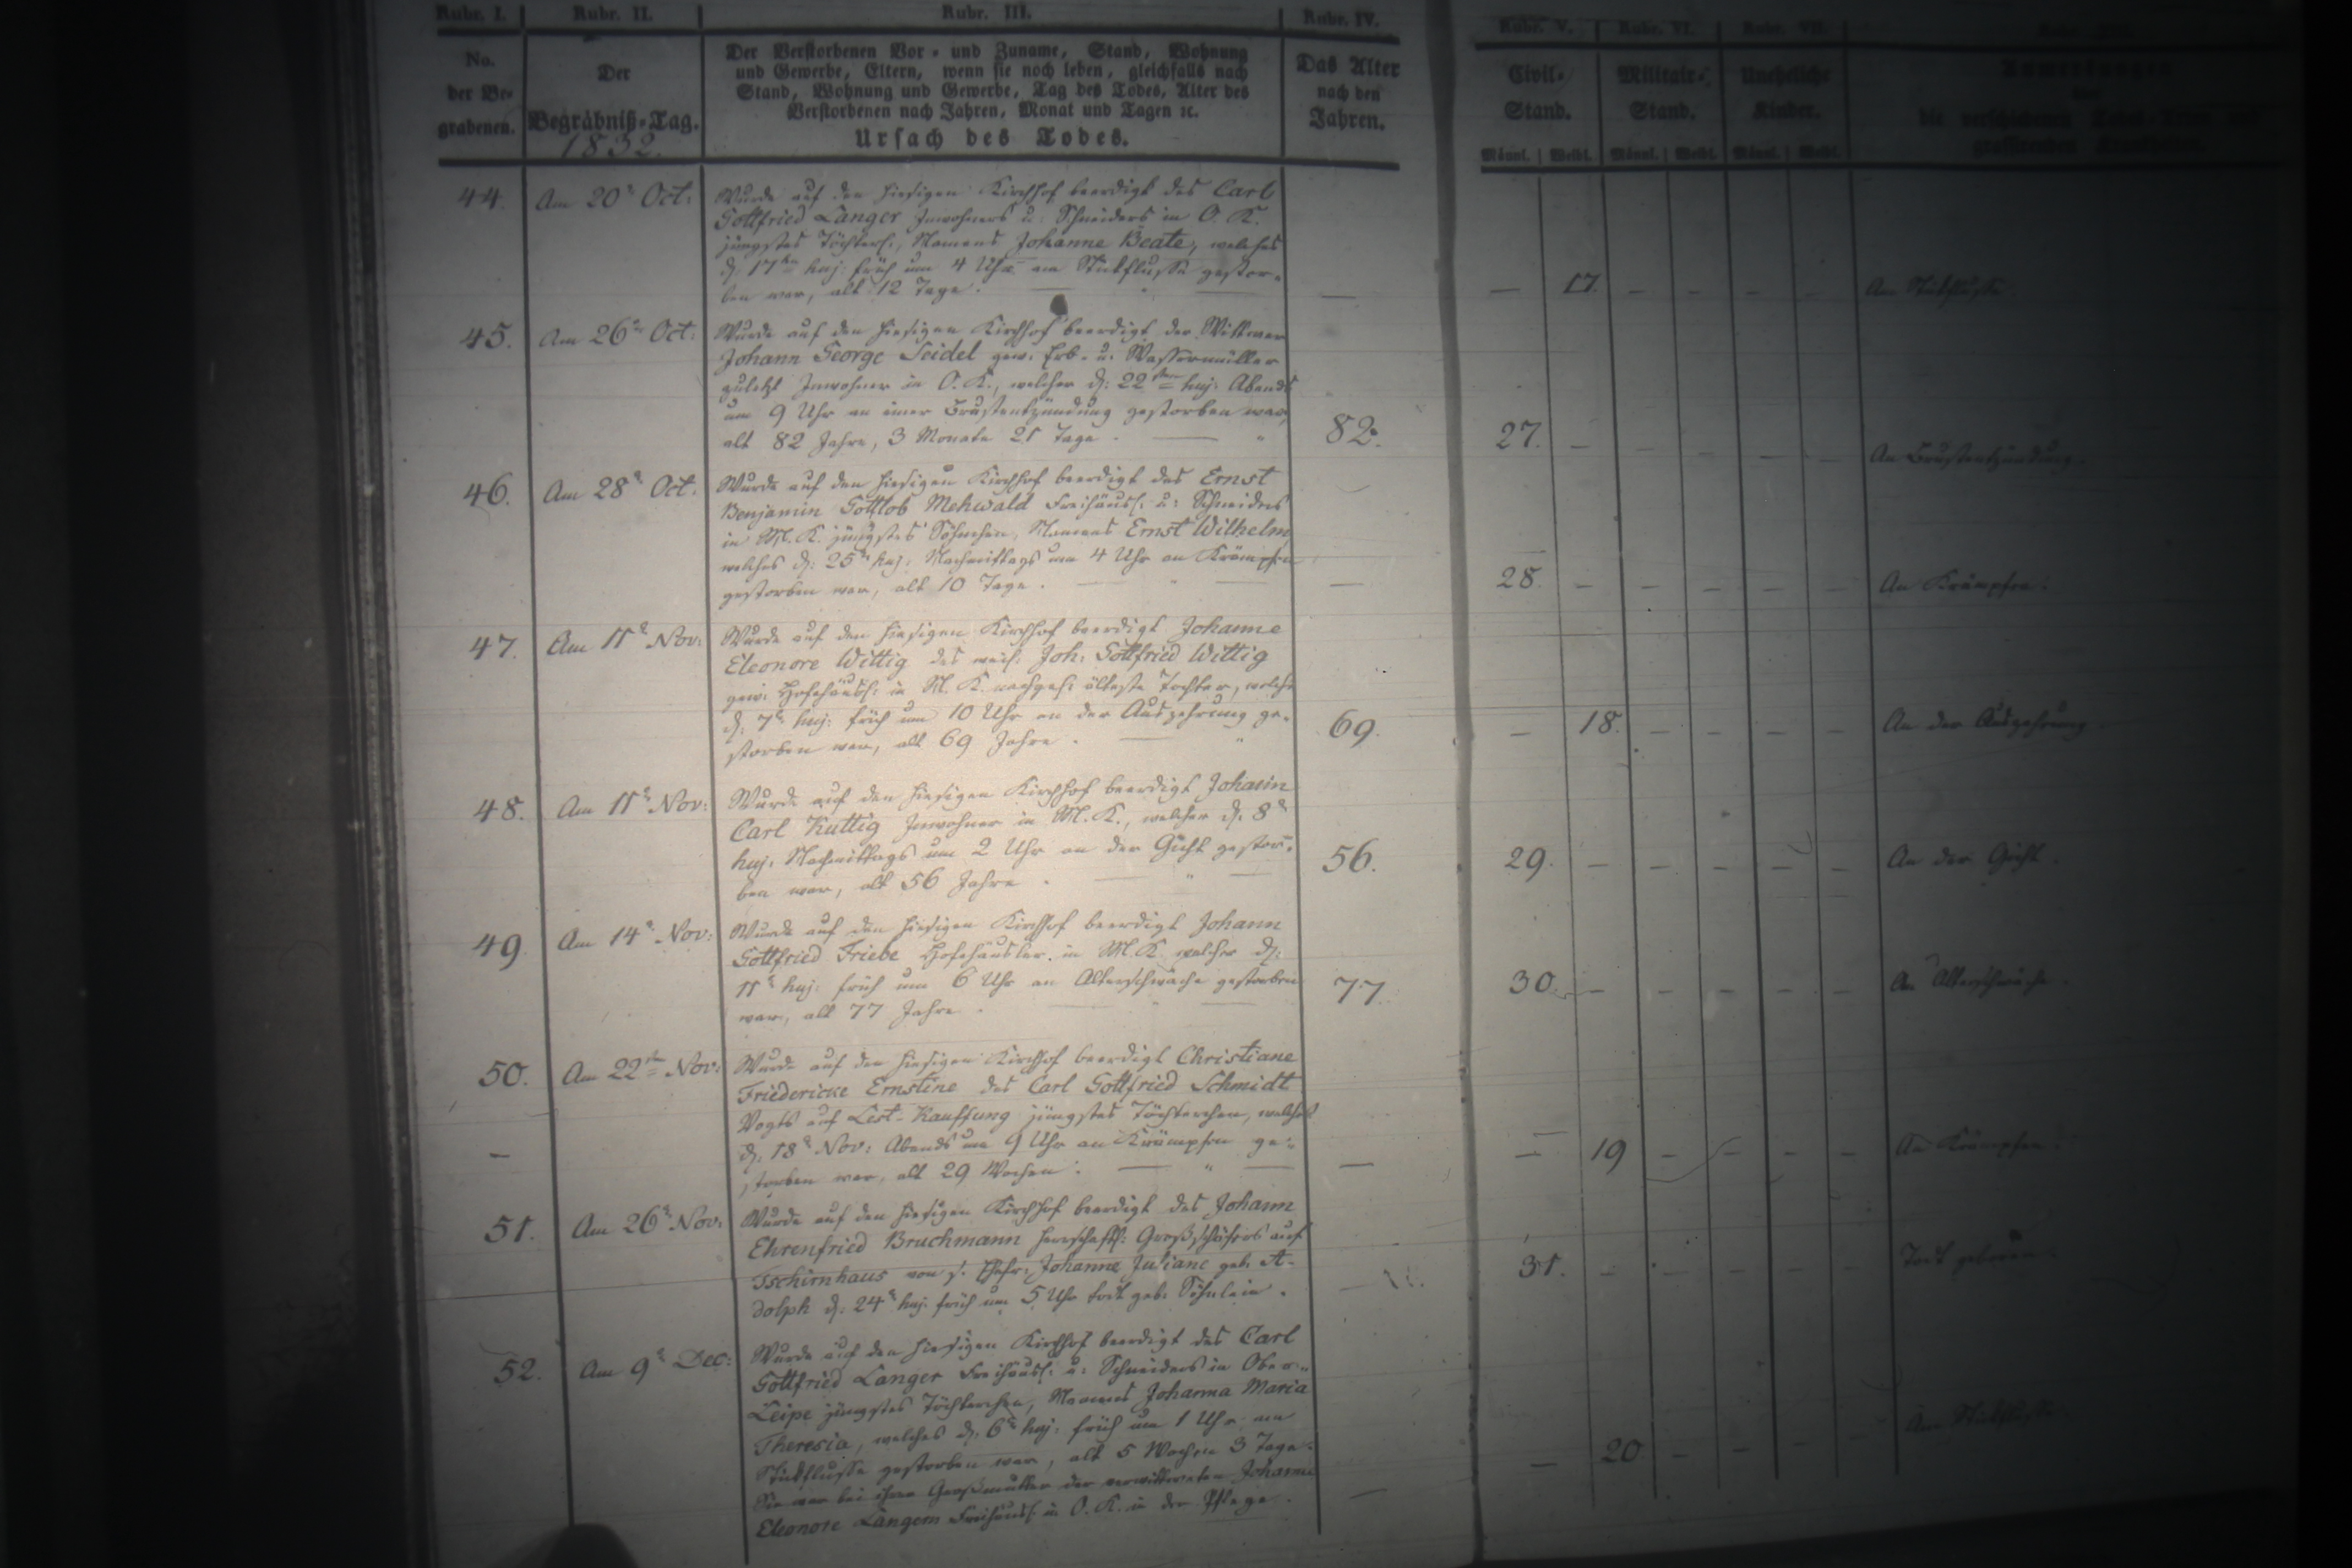 Rubr. I.
No.
der Be-
grabenen.
Rubr. II.
Der
Begräbniß-Tag.
1832.
Rubr. III.
Der Verstorbenen Vor- und Zuname, Stand, Wohnung
und Gewerbe, Eltern, wenn sie noch leben, gleichfalls nach
Stand, Wohnung und Gewerbe, Tag des Todes, Alter des
Verstorbenen nach Jahren, Monat und Tagen ꝛc.
Ursach des Todes.
Rubr. IV.
Das Alter
nach den
Jahren.
Rubr. V.
Civil-
Stand.
Männl. Weibl.
Rubr. VI.
Militair-
Stand.
Männl. Weibl.
Rubr. VII.
Uneheliche
Kinder.
Männl. Weibl.
Anmerkungen
44. Am 20n Oct:
Wurde auf den hiesigen Kirchhof beerdigt des Carl
Gottfried Langer Inwohners u: Schneiders in O. K.
jüngstes Töchterl:, Namens Johanne Beate, welches
d: 17ten huj: früh um 4 Uhr am Stickflusse gestor-
ben war, alt 12 Tage. —
— 17. — — — — Am Stickflusse
45. Am 26n Oct:
Wurde auf den hiesigen Kirchhof beerdigt der Wittwer
Johann George Seidel gew: Erb- u: Wassermüller
zuletzt Inwohner in O. K., welcher d: 22sten huj: Abends
um 9 Uhr an einer Brustentzündung gestorben war,
alt 82 Jahre, 3 Monate 21 Tage. — "
82. 27. — — — — — An Brustentzündung.
46. Am 28n Oct.
Wurde auf den hiesigen Kirchhof beerdigt das Ernst
Benjamin Gottlob Mehwald Freihäusl: u: Schneiders
in M. K. jüngstes Söhnchen, Namens Ernst Wilhelm,
welches d: 25n huj: Nachmittags um 4 Uhr an Krämpfen
gestorben war, alt 10 Tage. — " —
— 28. — — — — — An Krämpfen.
47. Am 11n Nov:
Wurde auf den hiesigen Kirchhof beerdigt Johanne
Eleonore Wittig des weil: Joh: Gottfried Wittig
gew: Hofehäusl: in M. K. nachgel: älteste Tochter, welche
d: 7n huj: früh um 10 Uhr an der Auszehrung ge-
storben war, alt 69 Jahre. — "
69. — 18. — — — — An der Auszehrung
48. Am 11n Nov:
Wurde auf den hiesigen Kirchhof beerdigt Johann
Carl Kuttig Inwohner in M. K., welcher d: 8n
huj: Nachmittags um 2 Uhr an der Gicht gestor-
ben war, alt 56 Jahre. — " —
56. 29. — — — — — An der Gicht.
49. Am 14n Nov:
Wurde auf den hiesigen Kirchhof beerdigt Johann
Gottfried Friebe Hofehäusler in M. K. welcher d:
11n huj: früh um 6 Uhr an Altersschwäche gestorben
war, alt 77 Jahre. — " —
77. 30. — — — — — An Altersschwäche.
50. Am 22sten Nov:
Wurde auf den hiesigen Kirchhof beerdigt Christiane
Friedericke Ernstine des Carl Gottfried Schmidt
Vogts auf Lest-Kauffung jüngstes Töchterchen, welches
d: 18n Nov: Abends um 9 Uhr an Krämpfen ge-
storben war, alt 29 Wochen. — " —
— 19 — — — — An Krämpfen.
51. Am 26n Nov:
Wurde auf den hiesigen Kirchhof beerdigt des Johann
Ehrenfried Bruchmann herrschaftl: Großschäfers auf
Tschirnhaus von s. Ehefr: Johanne Juliane geb. A-
dolph d: 24n huj: früh um 5 Uhr todt geb: Söhnlein.
— 31. — — — — — Todt geboren.
52. Am 9n Dec:
Wurde auf den hiesigen Kirchhof beerdigt des Carl
Gottfried Langer Freihäusl: u: Schneiders in Ober-
Leipe jüngstes Töchterchen, Namens Johanna Maria
Theresia, welches d: 6n huj: früh um 1 Uhr am
Stickflusse gestorben war, alt 5 Wochen 3 Tage.
Sie war bei ihrer Großmutter der verwittweten Johanne
Eleonore Langern Freihäusl: in O. K. in der Pflege.
— 20 — — — — Am Stickflusse